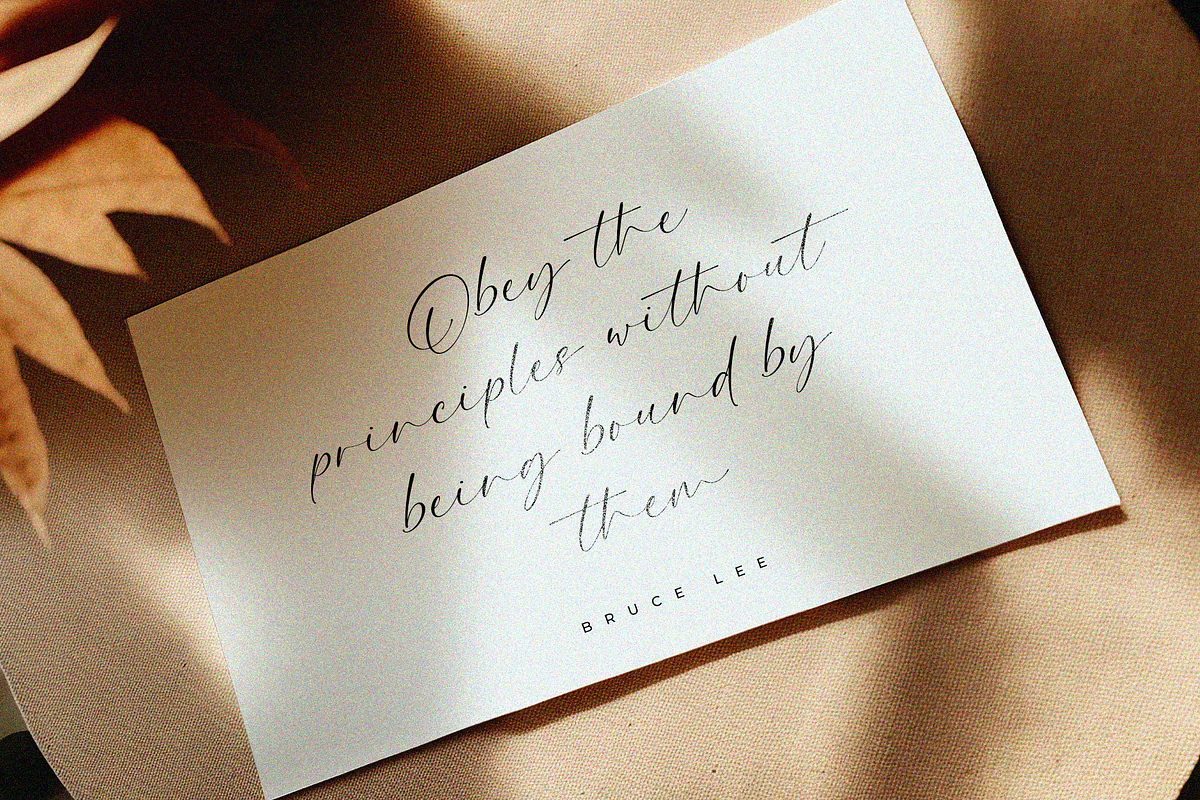 Obey the
principles without
being bound by
them
BRUCE LEE